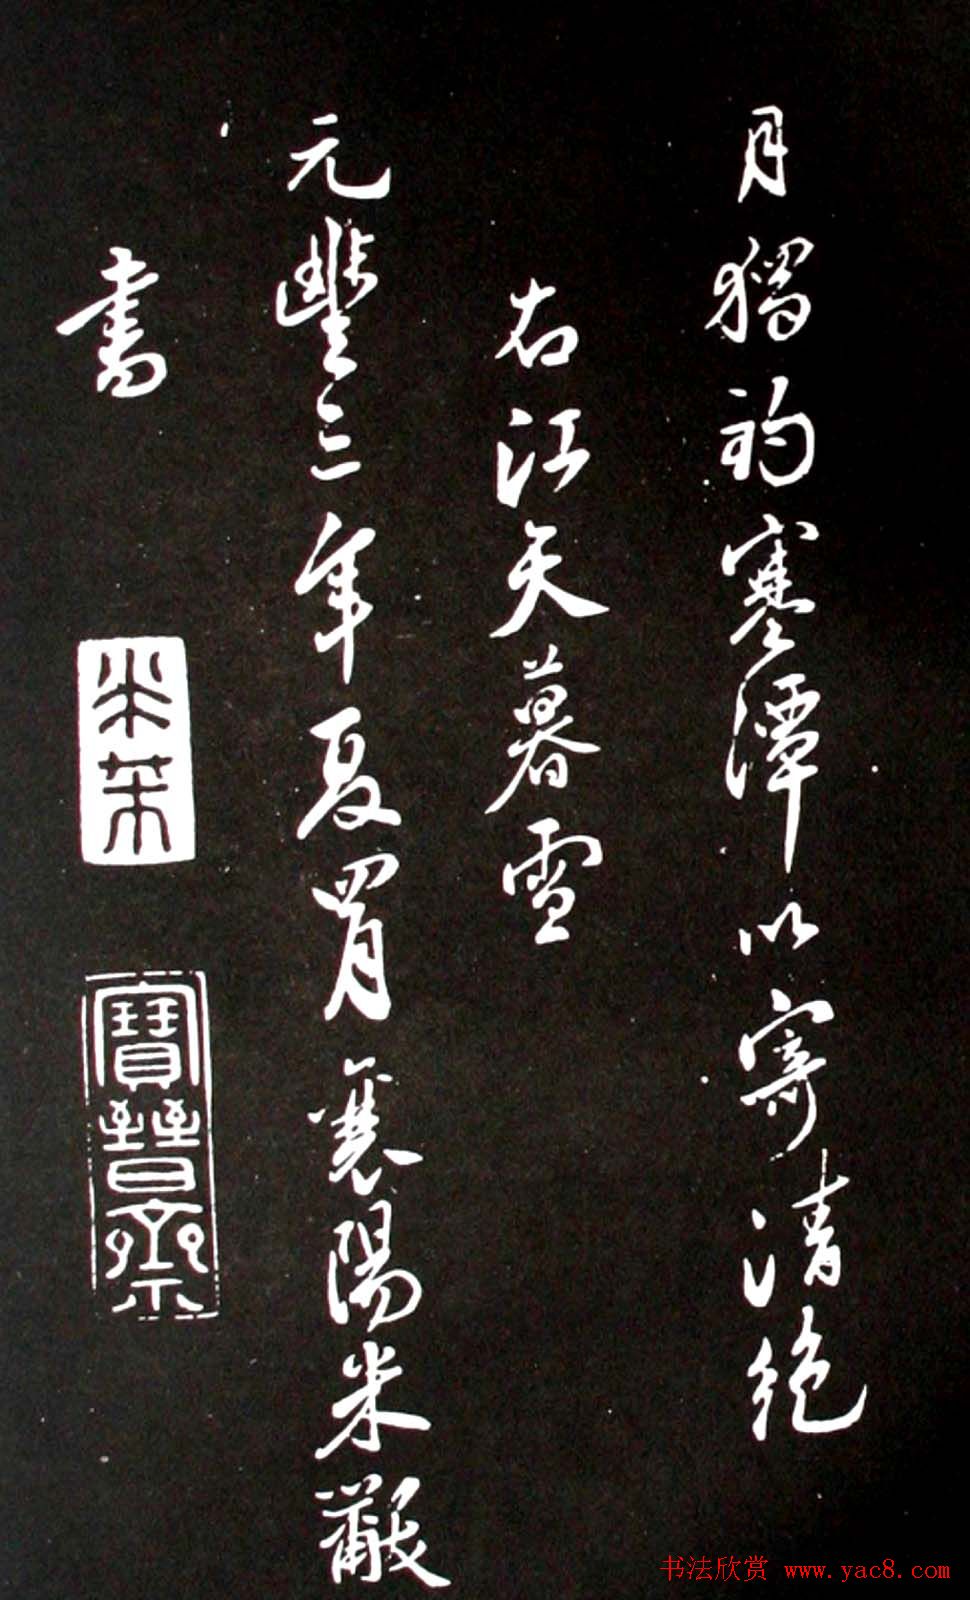 月獨釣寒潭以寄清絶
右江天暮雪
元豐三年夏四月襄陽米黻
書
米芾
寶晉齋
书法欣赏 www.yac8.com